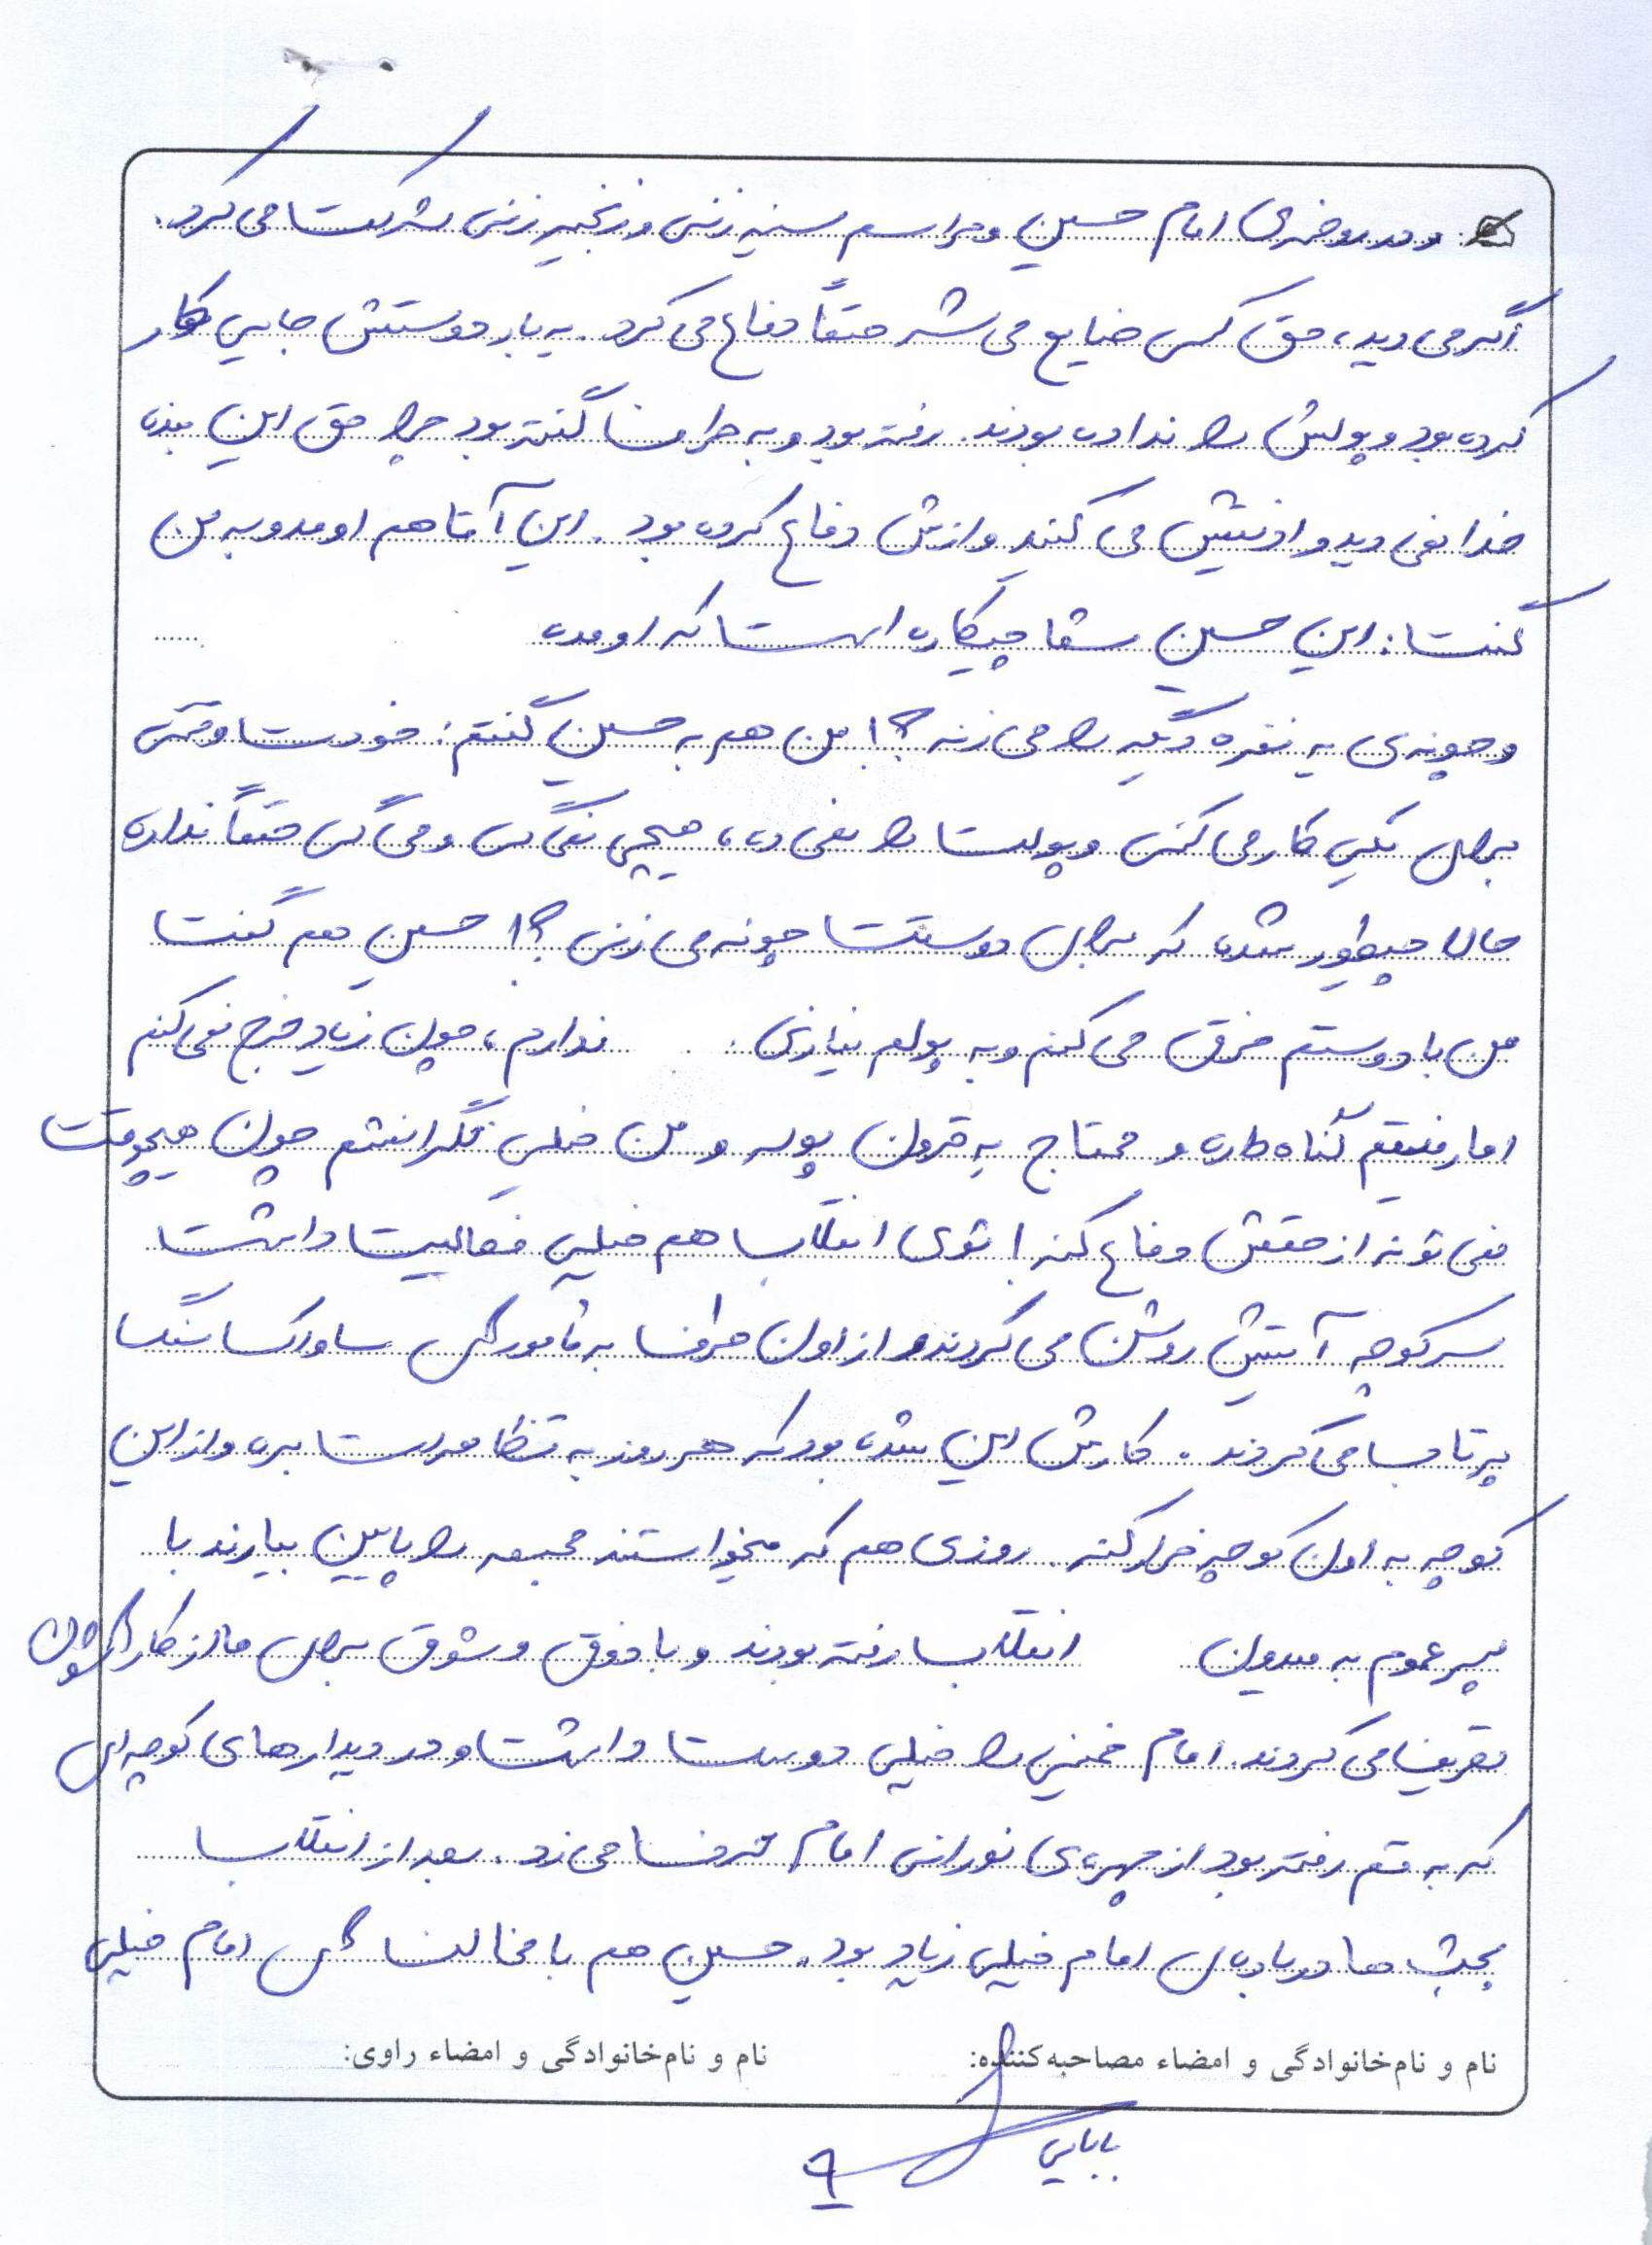 و در روضه‌ی امام حسین و مراسم سینه زنی و زنجیر زنی شرکت می کرد.
اگر می دید، حق کسی ضایع می شد حتماً دفاع می کرد. یه بار دوستش جایی کار
کرده بود و پولش را نداده بودند. رفته بود و به طرف گفته بود چرا حق این بنده
خدا نمی دید و اذیتش می کنید و ازش دفاع کرده بود. این آقا هم اومد و به من
گفت: این حسین شما چیکاره است که اومده
و چونه‌ی یه نفره دیگه را می زنه؟! من هم به حسین گفتم: خودت وقتی
برای یکی کار می کنی و پولت را نمی ده، هیچی نمی گی و می گی حتماً نداره
حالا چطور شده که برای دوستت چونه می زنی؟! حسین هم گفت
من با دوستم فرق می کنم و به پولم نیازی ندارم، چون زیاد خرج نمی کنم
اما رفیقم گناه داره و محتاج یه قرون پوله و من خیلی نگرانشم چون هیچوقت
نمی تونه از حقش دفاع کنه! توی انقلاب هم خیلی فعالیت داشت
سر کوچه آتیش روشن می کردند و از اون طرف به مامورای ساواک سنگ
پرتاب می کردند. کارش این شده بود که هر روز به تظاهرات بره و از این
کوچه به اون کوچه فرار کنه. روزی هم که میخواستند مجسمه را پایین بیارند با
پسر عموم به میدون انقلاب رفته بودند و با ذوق و شوق برای ما از کاراشون
تعریف می کردند. امام خمینی را خیلی دوست داشت و در دیدارهای کوچه ای
که به قم رفته بود از چهره‌ی نورانی امام حرف می زد. بعد از انقلاب
بحث ها درباره‌ی امام خیلی زیاد بود. حسین هم با مخالف های امام خیلی
نام و نام‌خانوادگی و امضاء مصاحبه‌کننده: نام و نام‌خانوادگی و امضاء راوی:
بابایی
۹